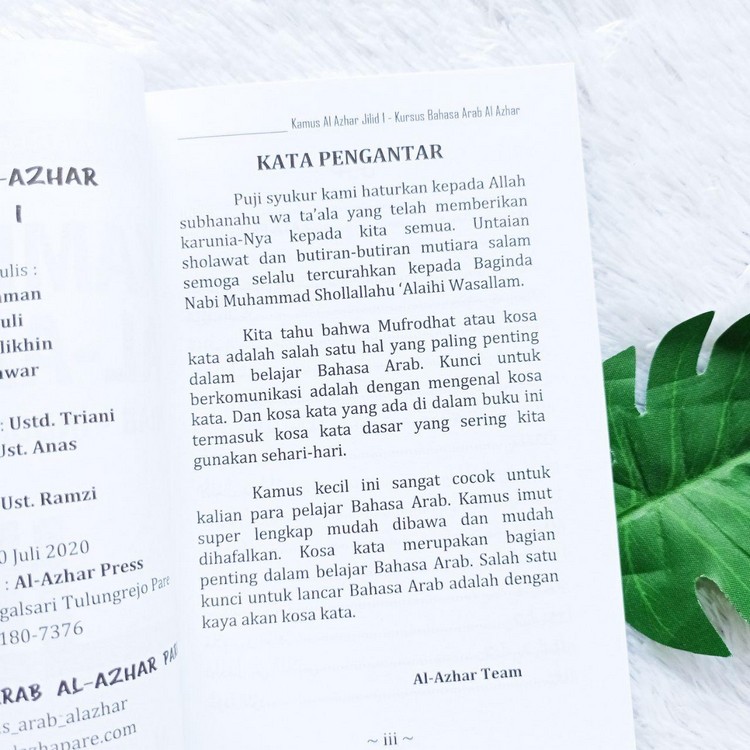 -AZHAR
I
ulis :
aman
uli
likhin
war
: Ustd. Triani
Ust. Anas
Ust. Ramzi
0 Juli 2020
: Al-Azhar Press
galsari Tulungrejo Pare
180-7376
ARAB AL-AZHAR PA
s_arab_alazhar
lazhapare.com
Kamus Al Azhar Jilid I - Kursus Bahasa Arab Al Azhar
KATA PENGANTAR
Puji syukur kami haturkan kepada Allah
subhanahu wa ta’ala yang telah memberikan
karunia-Nya kepada kita semua. Untaian
sholawat dan butiran-butiran mutiara salam
semoga selalu tercurahkan kepada Baginda
Nabi Muhammad Shollallahu ‘Alaihi Wasallam.
Kita tahu bahwa Mufrodhat atau kosa
kata adalah salah satu hal yang paling penting
dalam belajar Bahasa Arab. Kunci untuk
berkomunikasi adalah dengan mengenal kosa
kata. Dan kosa kata yang ada di dalam buku ini
termasuk kosa kata dasar yang sering kita
gunakan sehari-hari.
Kamus kecil ini sangat cocok untuk
kalian para pelajar Bahasa Arab. Kamus imut
super lengkap mudah dibawa dan mudah
dihafalkan. Kosa kata merupakan bagian
penting dalam belajar Bahasa Arab. Salah satu
kunci untuk lancar Bahasa Arab adalah dengan
kaya akan kosa kata.
Al-Azhar Team
~ iii ~